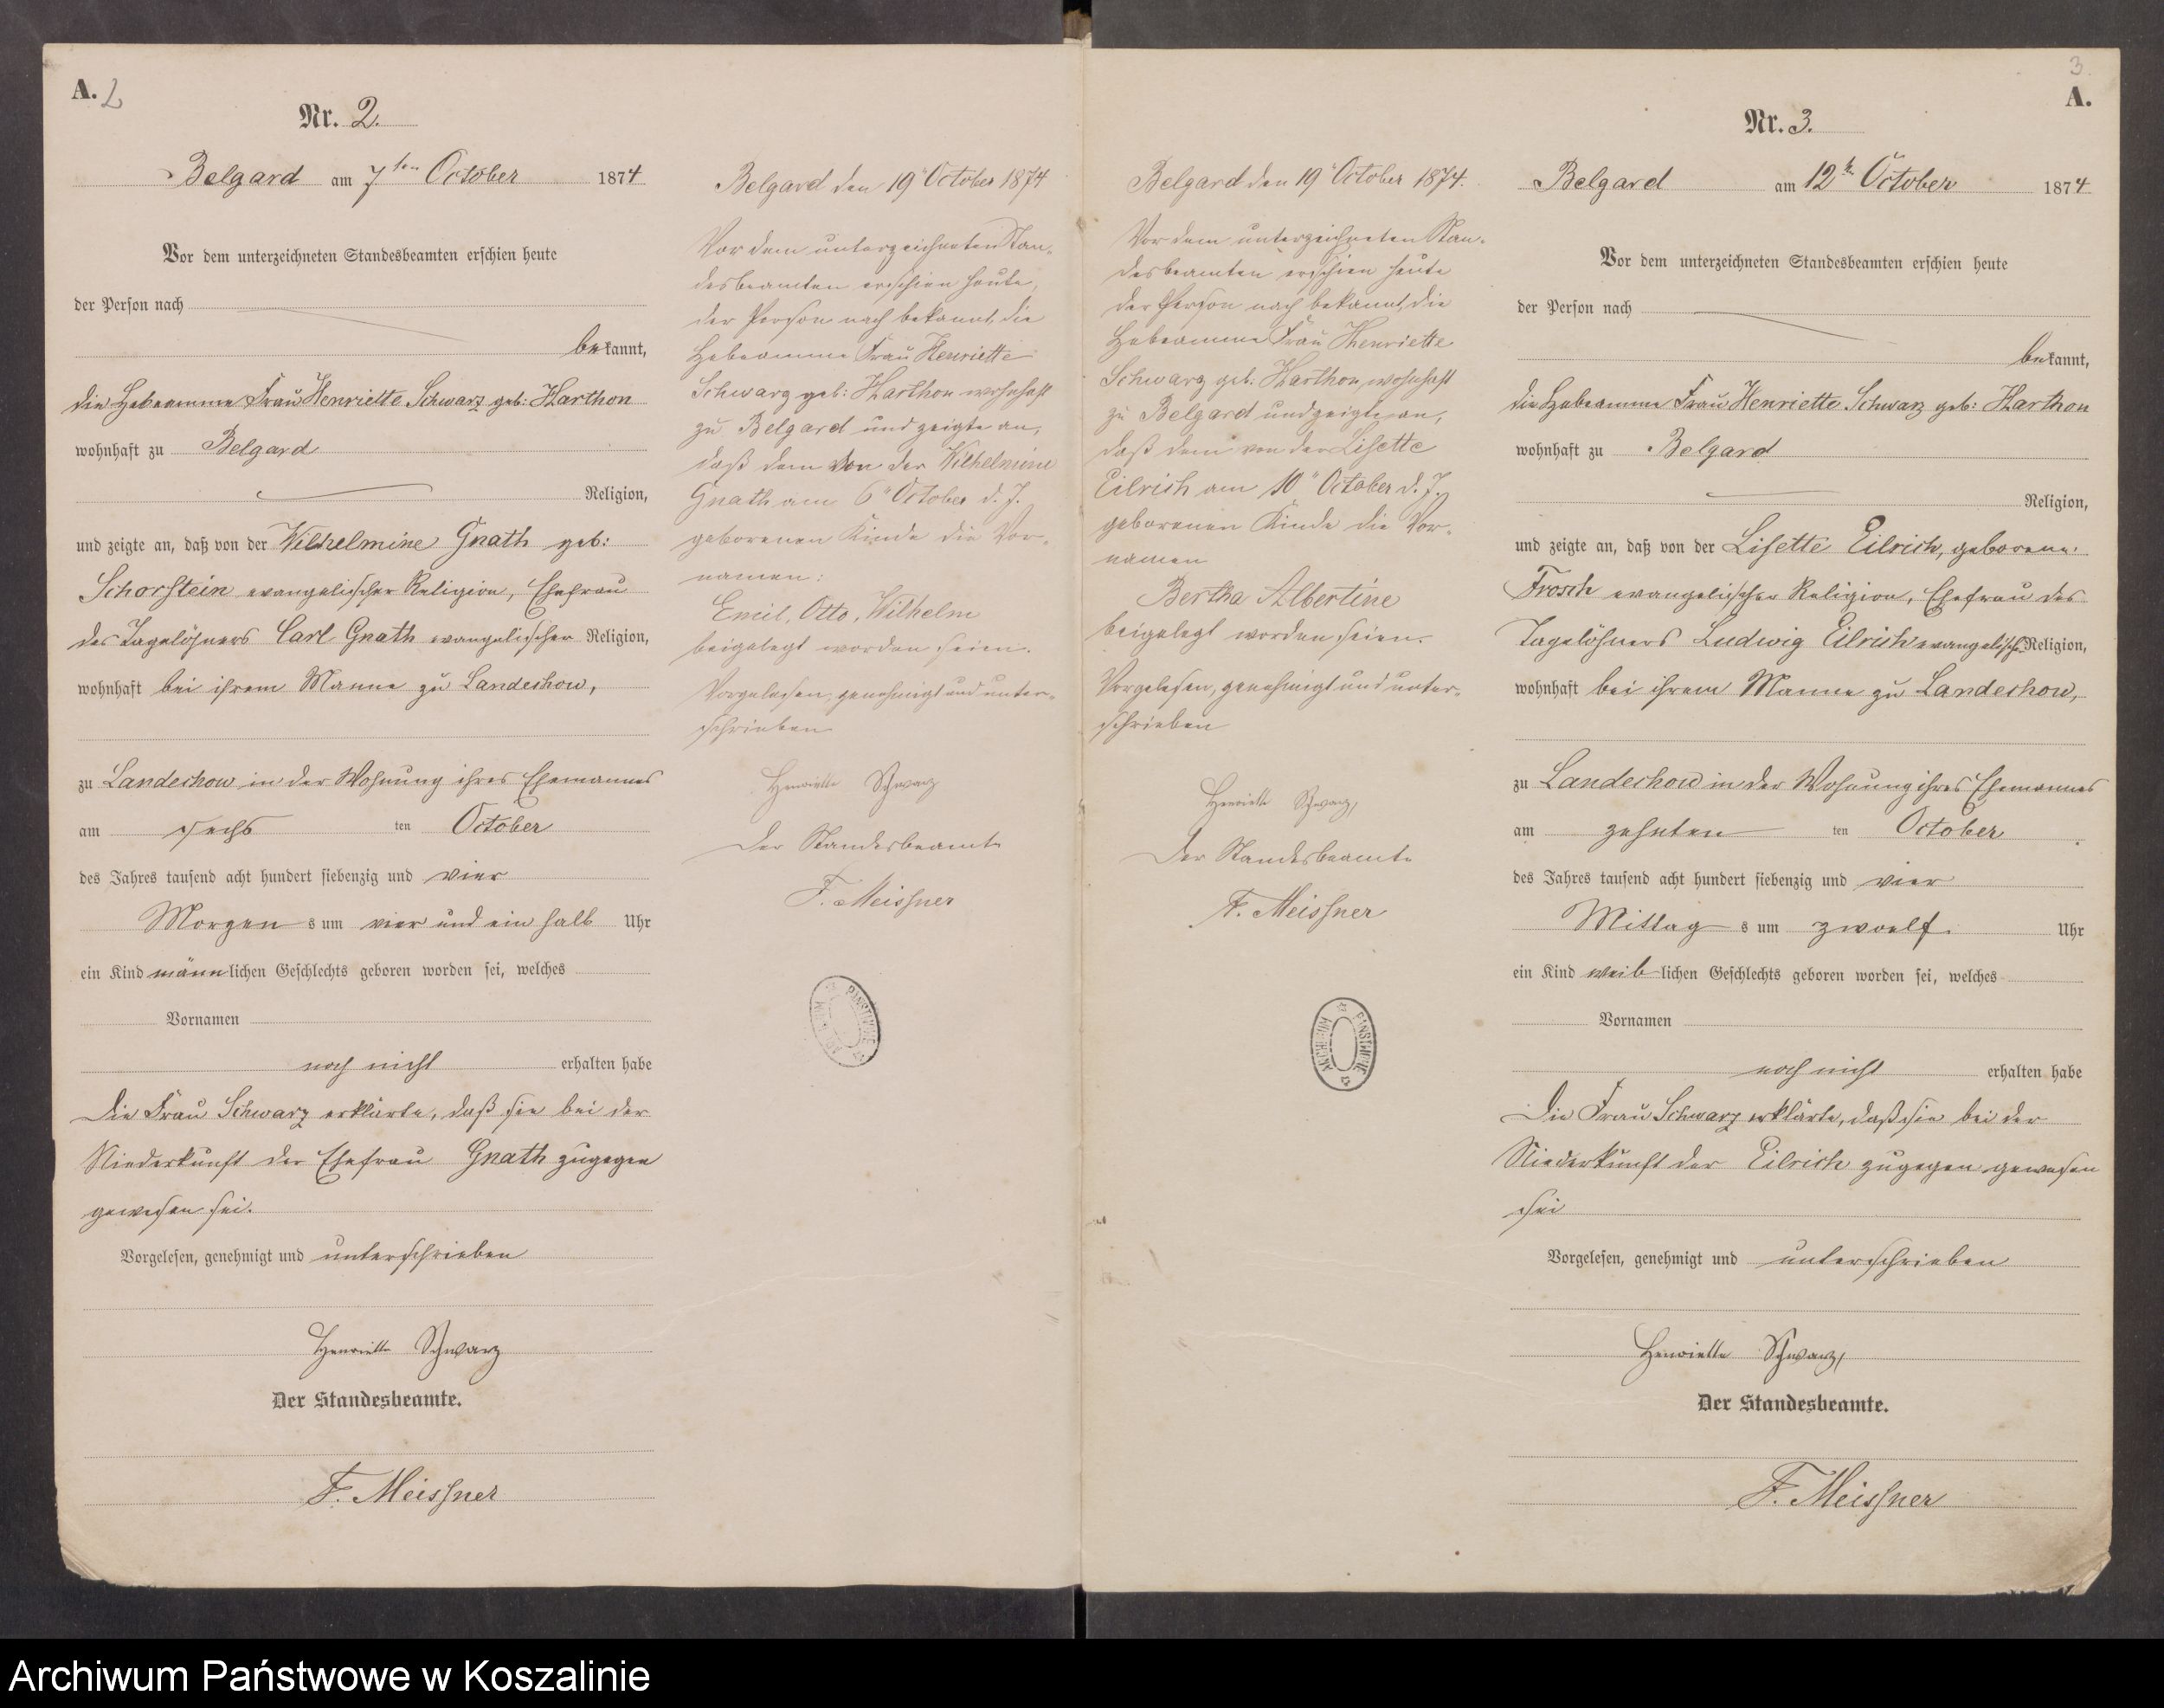 A. 2
Nr. 2.
Belgard am 7ten October 1874
Vor dem unterzeichneten Standesbeamten erschien heute
der Person nach
bekannt,
die Hebeamme Frau Henriette Schwarz geb: Harthon
wohnhaft zu Belgard
Religion,
und zeigte an, daß von der Wilhelmine Gnath geb:
Schorstein evangelischer Religion, Ehefrau
des Tagelöhners Carl Gnath evangelischer Religion,
wohnhaft bei ihrem Manne zu Landechow,
zu Landechow in der Wohnung ihres Ehemannes
am sechs ten October
des Jahres tausend acht hundert siebenzig und vier
Morgen s um vier und ein halb Uhr
ein Kind männlichen Geschlechts geboren worden sei, welches
Vornamen
noch nicht erhalten habe
Die Frau Schwarz erklärte, daß sie bei der
Niederkunft der Ehefrau Gnath zugegen
gewesen sei.
Vorgelesen, genehmigt und unterschrieben
Henriette Schwarz
Der Standesbeamte.
F. Meissner
Belgard den 19" October 1874
Vor dem unterzeichneten Stan-
desbeamten erschien heute,
der Person nach bekannt, die
Hebeamme Frau Henriette
Schwarz geb: Harthon wohnhaft
zu Belgard und zeigte an,
daß dem von der Wilhelmine
Gnath am 6" October d. J.
geborenen Kinde die Vor-
namen:
Emil, Otto, Wilhelm
beigelegt worden seien.
Vorgelesen, genehmigt und unter-
schrieben
Henriette Schwarz
Der Standesbeamte
F. Meissner
ARCHIWUM PAŃSTWOWE
Belgard den 19" October 1874.
Vor dem unterzeichneten Stan-
desbeamten erschien heute
der Person nach bekannt, die
Hebeamme Frau Henriette
Schwarz geb. Harthon wohnhaft
zu Belgard und zeigte an,
daß dem von der Lisette
Eilrich am 10" October d. J.
geborenen Kinde die Vor-
namen
Bertha Albertine
beigelegt worden seien.
Vorgelesen, genehmigt und unter-
schrieben
Henriette Schwarz,
Der Standesbeamte
F. Meissner
ARCHIWUM PAŃSTWOWE
3.
A.
Nr. 3.
Belgard am 12te October 1874
Vor dem unterzeichneten Standesbeamten erschien heute
der Person nach
bekannt,
die Hebeamme Frau Henriette Schwarz geb: Harthon
wohnhaft zu Belgard
Religion,
und zeigte an, daß von der Lisette Eilrich, geborene
Frosch evangelischer Religion, Ehefrau des
Tagelöhners Ludwig Eilrich evangelisch. Religion,
wohnhaft bei ihrem Manne zu Landechow,
zu Landechow in der Wohnung ihres Ehemannes
am zehnten ten October
des Jahres tausend acht hundert siebenzig und vier
Mittag s um zwoelf. Uhr
ein Kind weiblichen Geschlechts geboren worden sei, welches
Vornamen
noch nicht erhalten habe
Die Frau Schwarz erklärte, daß sie bei der
Niederkunft der Eilrich zugegen gewesen
sei
Vorgelesen, genehmigt und unterschrieben
Henriette Schwarz,
Der Standesbeamte.
F. Meissner
Archiwum Państwowe w Koszalinie